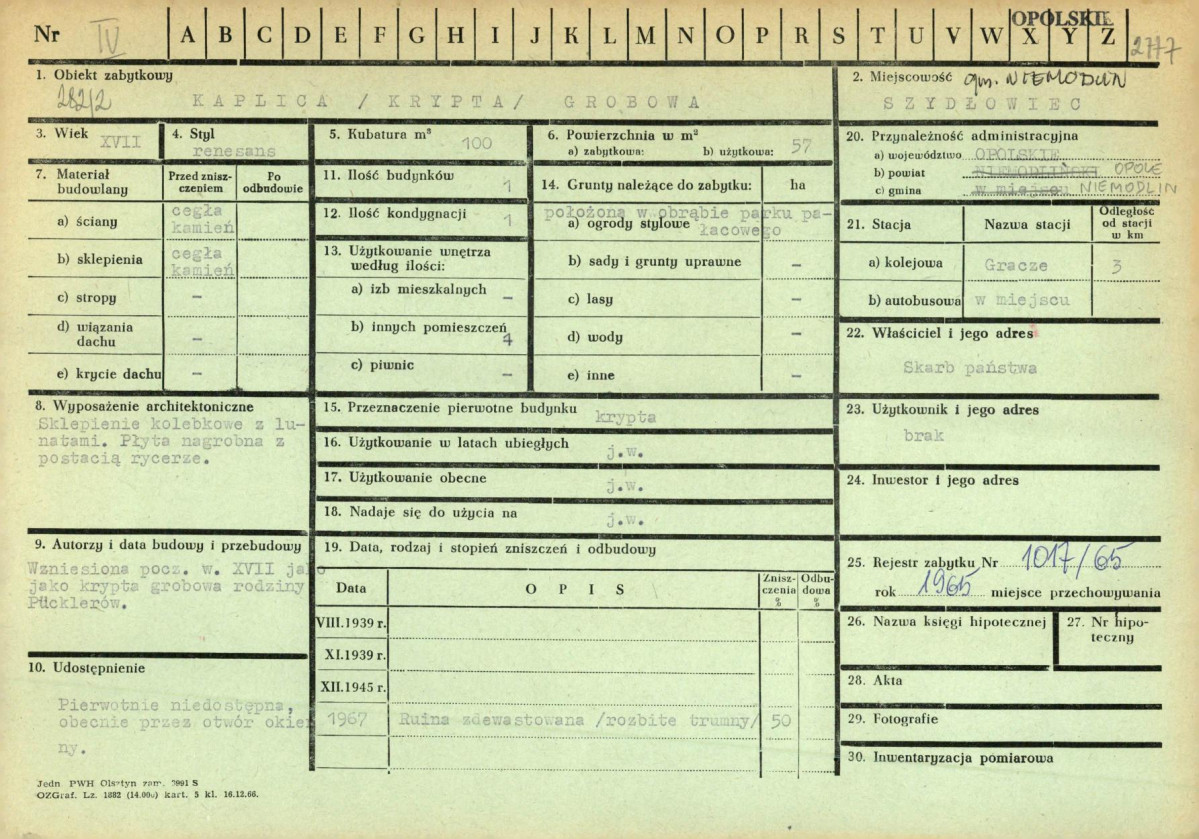 Nr IV A B C D E F G H I J K L M N O P R S T U V W X Y Z
OPOLSKIE
2777
1. Obiekt zabytkowy
282/2
KAPLICA /KRYPTA/ GROBOWA
2. Miejscowość gm. NIEMODLIN
SZYDŁOWIEC
3. Wiek XVII
4. Styl
renesans
5. Kubatura m³
100
6. Powierzchnia w m²
a) zabytkowa: b) użytkowa: 57
7. Materiał budowlany
Przed zniszczeniem
Po odbudowie
a) ściany
cegła
kamień
b) sklepienia
cegła
kamień
c) stropy –
d) wiązania dachu –
e) krycie dachu –
11. Ilość budynków
1
12. Ilość kondygnacji
1
13. Użytkowanie wnętrza
według ilości:
a) izb mieszkalnych –
b) innych pomieszczeń
1
c) piwnic –
14. Grunty należące do zabytku: ha
położona w obrąbie parku pa-
a) ogrody stylowe łacowego
b) sady i grunty uprawne –
c) lasy –
d) wody –
e) inne –
20. Przynależność administracyjna
a) województwo OPOLSKIE
b) powiat NIEMODLIŃSKI OPOLE
c) gmina w miejscu NIEMODLIN
21. Stacja
Nazwa stacji
Odległość
od stacji
w km
a) kolejowa Gracze 3
b) autobusowa w miejscu
22. Właściciel i jego adres
Skarb państwa
8. Wyposażenie architektoniczne
Sklepienie kolebkowe z lu-
natami. Płyta nagrobna z
postacią rycerze.
15. Przeznaczenie pierwotne budynku
krypta
16. Użytkowanie w latach ubiegłych
j.w.
17. Użytkowanie obecne
j.w.
18. Nadaje się do użycia na
j.w.
23. Użytkownik i jego adres
brak
24. Inwestor i jego adres
9. Autorzy i data budowy i przebudowy
Wzniesiona pocz. w. XVII jako
jako krypta grobowa rodziny
Pücklerów.
10. Udostępnienie
Pierwotnie niedostępna,
obecnie przez otwór okien
ny.
19. Data, rodzaj i stopień zniszczeń i odbudowy
Data
O P I S
Znisz-
czenia
%
Odbu-
dowa
%
VIII.1939 r.
XI.1939 r.
XII.1945 r.
1967 Ruina zdewastowana /rozbite trumny/ 50
25. Rejestr zabytku Nr 1017/65
rok 1965 miejsce przechowywania
26. Nazwa księgi hipotecznej
27. Nr hipo-
teczny
28. Akta
29. Fotografie
30. Inwentaryzacja pomiarowa
Jedn PWH Olsztyn zam. 3991 S
OZGraf. Lz. 1882 (14.000) kart. 5 kl. 16.12.66.